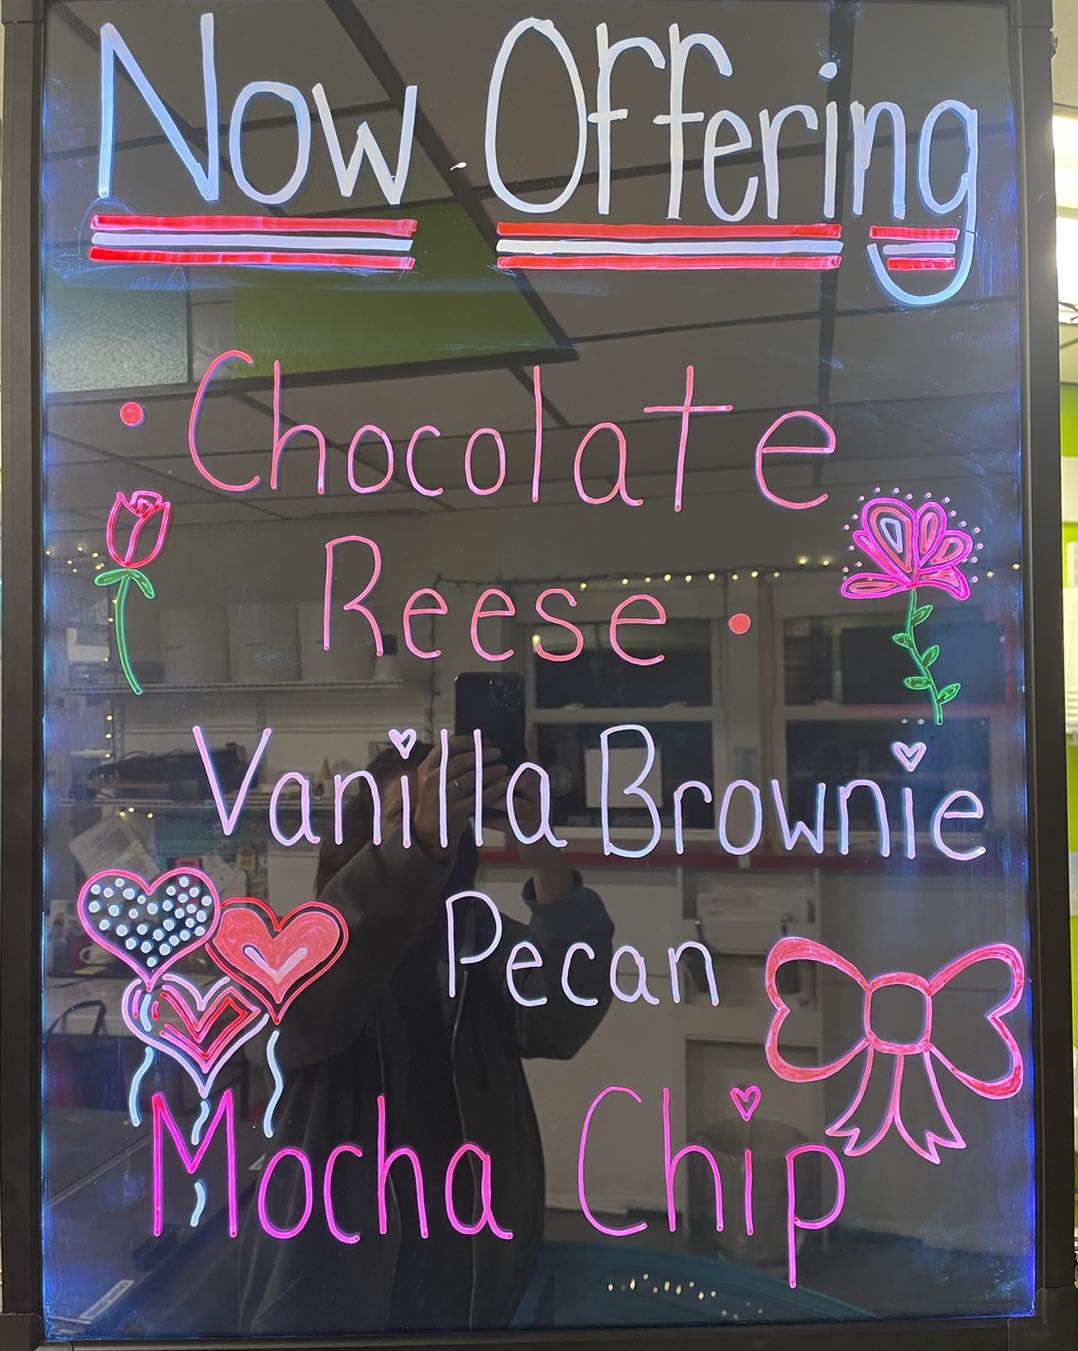 Now Offering
• Chocolate
Reese •
Vanilla Brownie
Pecan
Mocha Chip